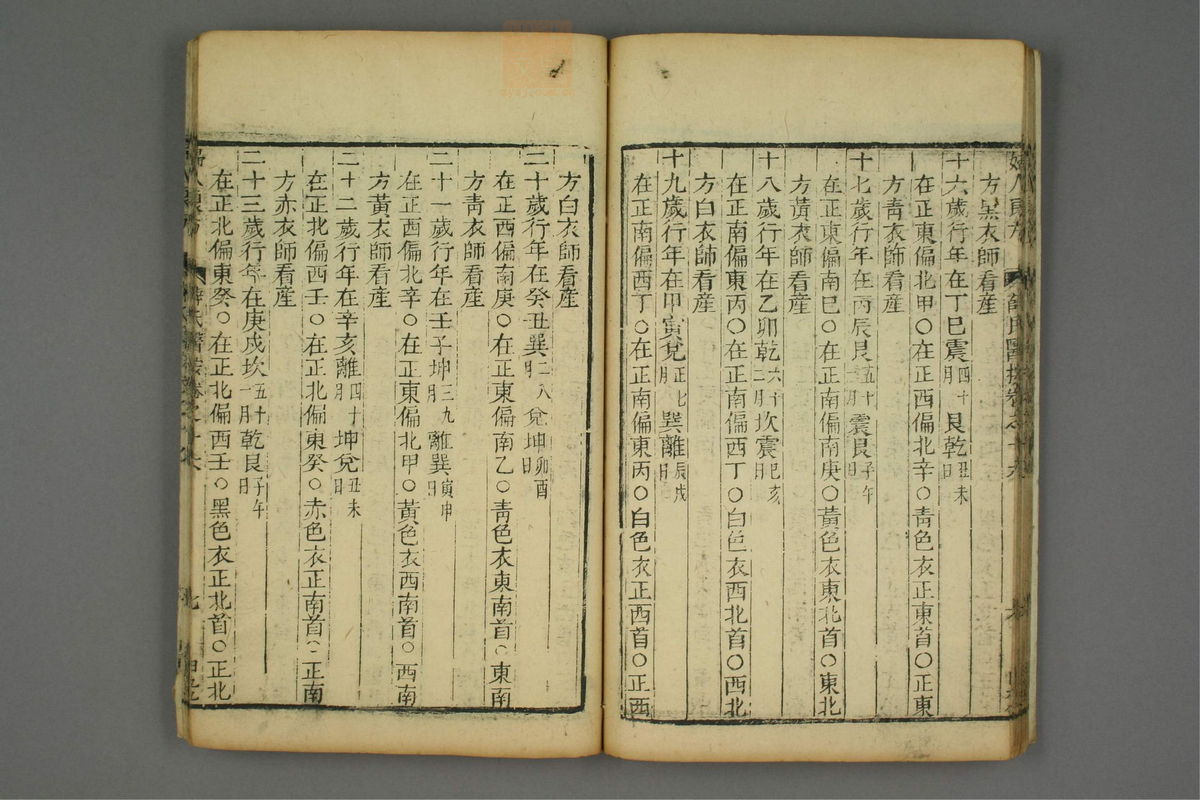 方黑衣師看産
十六歲行年在丁巳震四十月艮乾丑未日
在正東偏北甲○在正西偏北辛○靑色衣正東首○正東
方靑衣師看産
十七歲行年在丙辰艮五十月震艮子午日
在正東偏南巳○在正東偏南庚○黃色衣東北首○東北
方黃衣師看産
十八歲行年在乙卯乾六十二月坎震巳亥日
在正南偏東丙○在正南偏西丁○白色衣西北首○西北
方白衣師看産
十九歲行年在甲寅兌正七月巽離辰戌日
在正南偏西丁○在正南偏東丙○白色衣正西首○正西
方白衣師看産
二十歲行年在癸丑巽二八月兌坤卯酉日
在正西偏南庚○在正東偏南乙○靑色衣東南首○東南
方靑衣師看産
二十一歲行年在壬子坤三九月離巽寅申日
在正西偏北辛○在正東偏北甲○黃色衣西南首○西南
方黃衣師看産
二十二歲行年在辛亥離四十月坤兌丑未日
在正北偏西壬○在正北偏東癸○赤色衣正南首○正南
方赤衣師看産
二十三歲行年在庚戌坎五十一月乾艮子午日
在正北偏東癸○在正北偏西壬○黑色衣正北首○正北